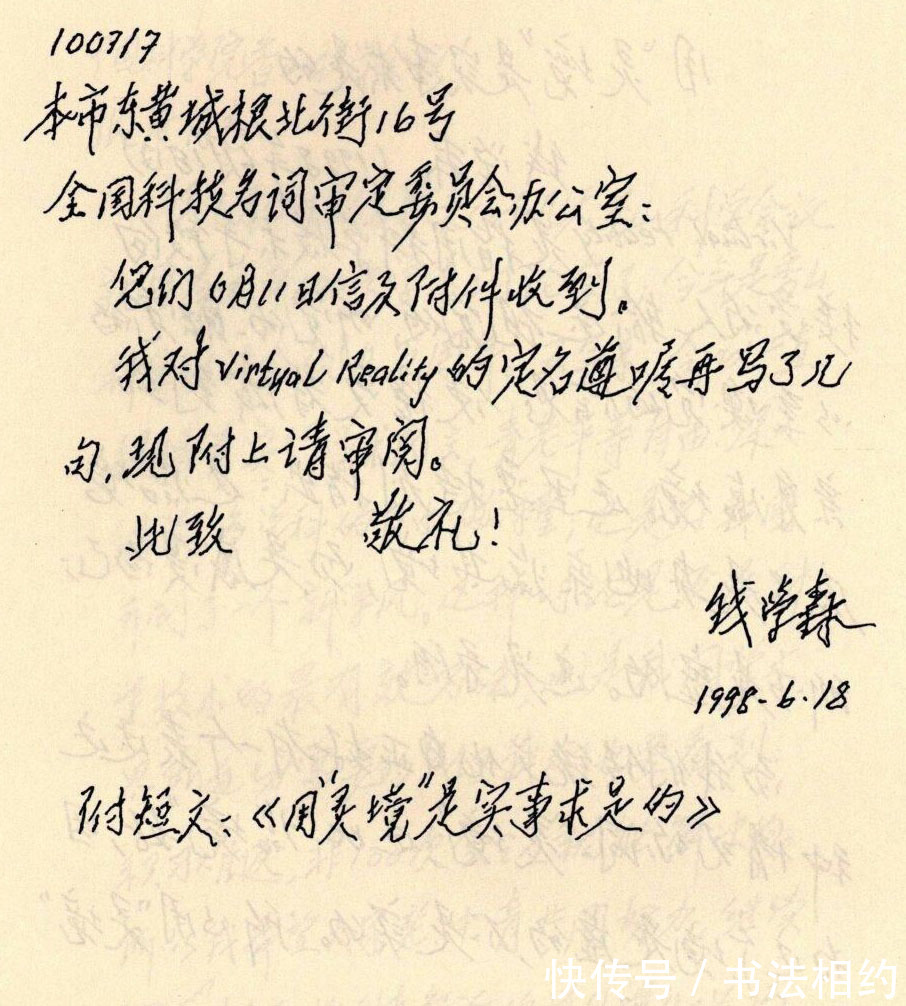 100717
本市东黄城根北街16号
全国科技名词审定委员会办公室：
您们6月11日信及附件收到。
我对Virtual Reality的定名遵嘱再写了几
句，现附上请审阅。
此致 敬礼！
钱学森
1998-6.18
附短文：《用"灵境"是实事求是的》
快传号 / 书法相约